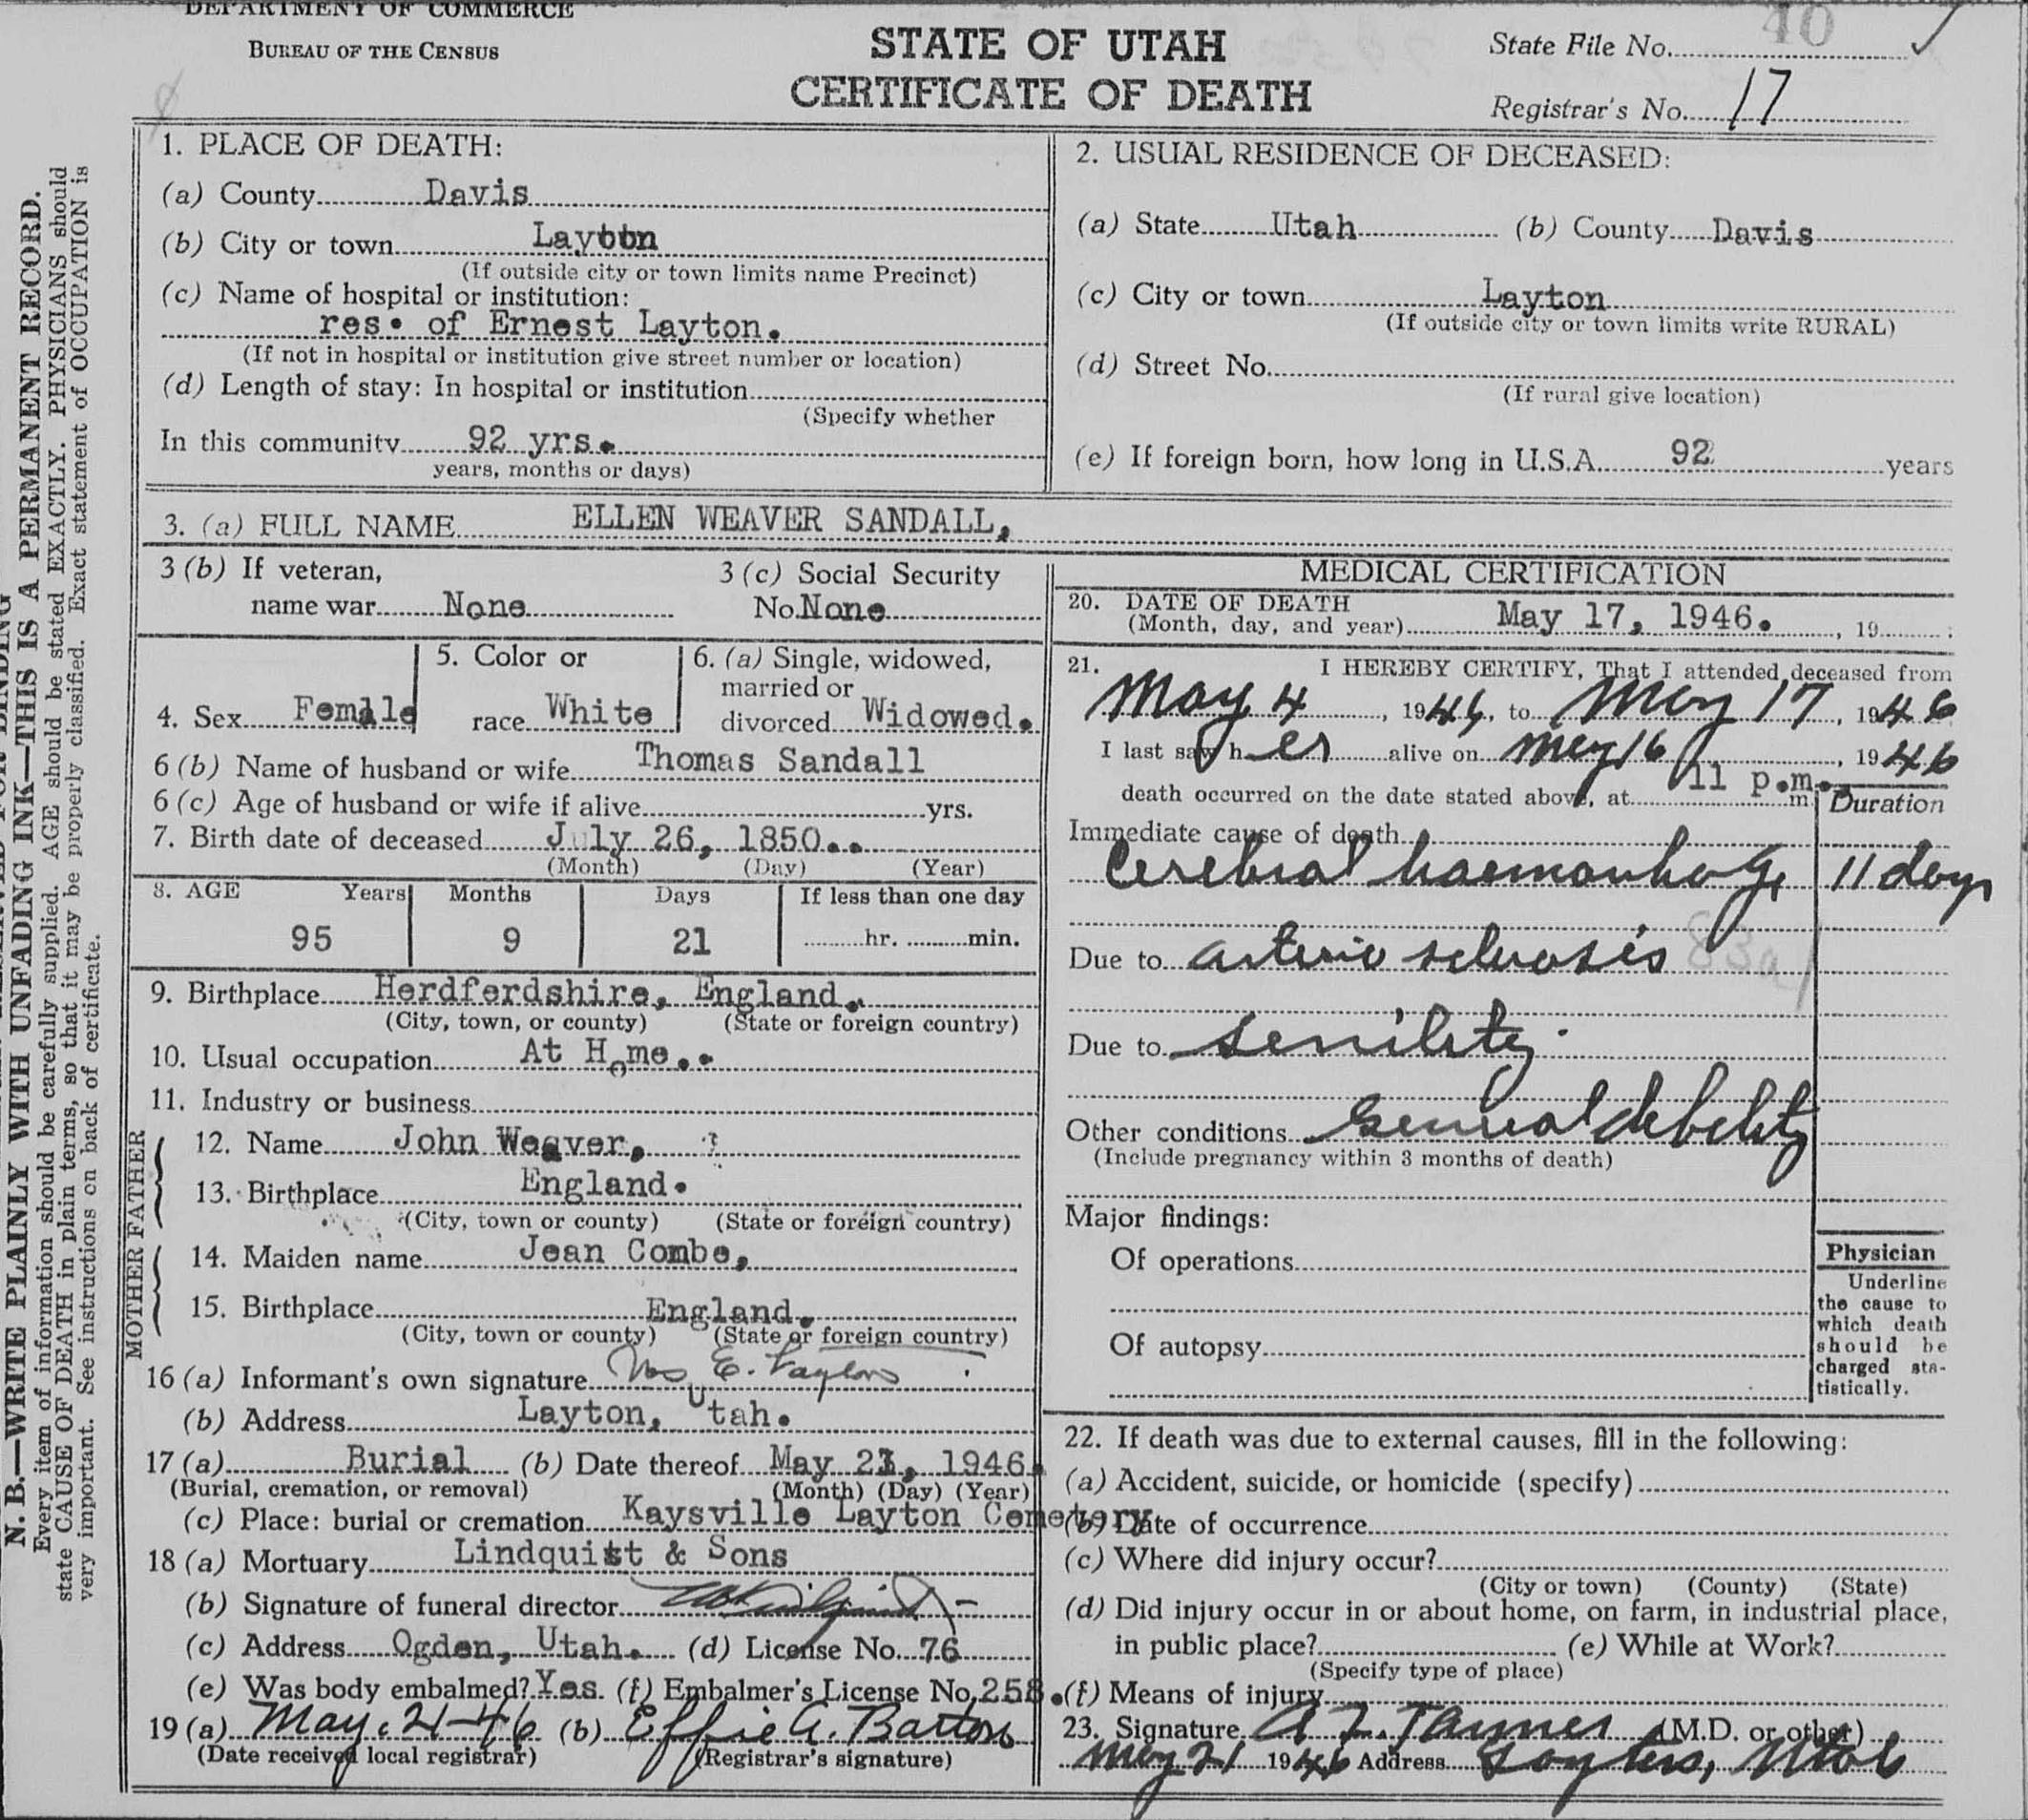 DEPARTMENT OF COMMERCE
BUREAU OF THE CENSUS
STATE OF UTAH
CERTIFICATE OF DEATH
State File No. 40
Registrar's No. 17
N. B.—WRITE PLAINLY WITH UNFADING INK—THIS IS A PERMANENT RECORD.
Every item of information should be carefully supplied. AGE should be stated EXACTLY. PHYSICIANS should
state CAUSE OF DEATH in plain terms, so that it may be properly classified. Exact statement of OCCUPATION is
very important. See instructions on back of certificate.
1. PLACE OF DEATH:
(a) County Davis
(b) City or town Layton
(If outside city or town limits name Precinct)
(c) Name of hospital or institution:
res. of Ernest Layton.
(If not in hospital or institution give street number or location)
(d) Length of stay: In hospital or institution
(Specify whether
In this community 92 yrs.
years, months or days)
2. USUAL RESIDENCE OF DECEASED:
(a) State Utah (b) County Davis
(c) City or town Layton
(If outside city or town limits write RURAL)
(d) Street No.
(If rural give location)
(e) If foreign born, how long in U.S.A. 92 years
3. (a) FULL NAME ELLEN WEAVER SANDALL,
3 (b) If veteran,
name war None
3 (c) Social Security
No. None
4. Sex Female
5. Color or
race White
6. (a) Single, widowed,
married or
divorced Widowed.
6 (b) Name of husband or wife Thomas Sandall
6 (c) Age of husband or wife if alive yrs.
7. Birth date of deceased July 26, 1850..
(Month) (Day) (Year)
8. AGE Years Months Days If less than one day
95 9 21 hr. min.
9. Birthplace Herdferdshire, England.
(City, town, or county) (State or foreign country)
10. Usual occupation At Home..
11. Industry or business
FATHER
12. Name John Weaver, ?
13. Birthplace England.
(City, town or county) (State or foreign country)
MOTHER
14. Maiden name Jean Combe,
15. Birthplace England.
(City, town or county) (State or foreign country)
16 (a) Informant's own signature Mrs E.
(b) Address Layton, Utah.
17 (a) Burial (b) Date thereof May 21, 1946.
(Burial, cremation, or removal) (Month) (Day) (Year)
(c) Place: burial or cremation Kaysville Layton Cemetery
18 (a) Mortuary Lindquist & Sons
(b) Signature of funeral director
(c) Address Ogden, Utah. (d) License No. 76
(e) Was body embalmed? Yes. (f) Embalmer's License No. 258.
19 (a) May. 21-46 (b) Effie A. Barton
(Date received local registrar) (Registrar's signature)
MEDICAL CERTIFICATION
20. DATE OF DEATH
(Month, day, and year) May 17, 1946. , 19 .
21. I HEREBY CERTIFY, That I attended deceased from
May 4 , 1946, to May 17, 1946
I last saw her alive on May 16 , 1946
death occurred on the date stated above, at 11 p.m. m Duration
Immediate cause of death
Cerebral haemorrhage 11 days
Due to arterio sclerosis 83a
Due to senility.
Other conditions General debility
(Include pregnancy within 3 months of death)
Major findings:
Of operations
Of autopsy
Physician
Underline
the cause to
which death
should be
charged sta-
tistically.
22. If death was due to external causes, fill in the following:
(a) Accident, suicide, or homicide (specify)
(b) Date of occurrence
(c) Where did injury occur?
(City or town) (County) (State)
(d) Did injury occur in or about home, on farm, in industrial place,
in public place? (e) While at Work?
(Specify type of place)
(f) Means of injury
23. Signature A Z. Tanner (M.D. or other)
May 21 1946 Address Layton, Utah